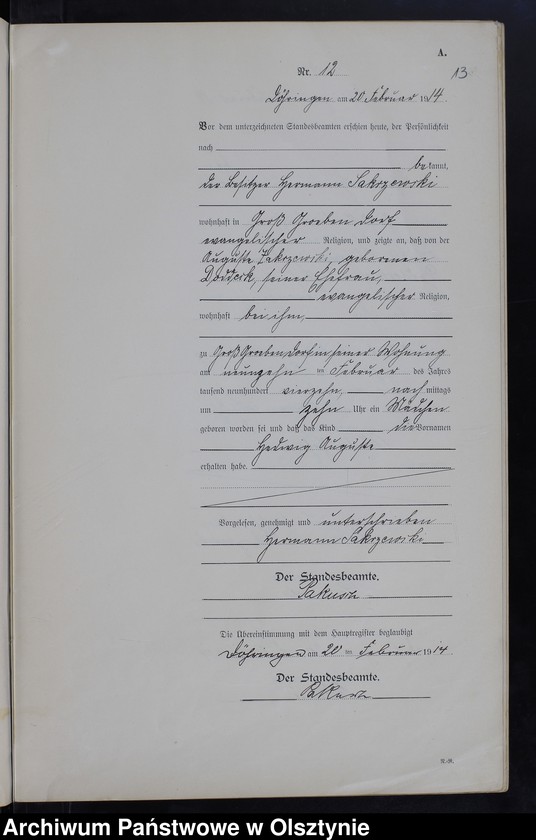 A.
Nr. 12
13
Döhringen am 20 Februar 1914
Vor dem unterzeichneten Standesbeamten erschien heute, der Persönlichkeit
nach
bekannt,
der Besitzer Hermann Sakrzewski
wohnhaft in Groß Groeben Dorf
evangelischer Religion, und zeigte an, daß von der
Auguste Sakrzewski, geborenen
seiner Ehefrau,
evangelischer Religion,
wohnhaft bei ihm,
zu Groß Groeben Dorf in seiner Wohnung
am neunzehn ten Februar des Jahres
tausend neunhundert vierzehn, nach mittags
um zehn Uhr ein Mädchen
geboren worden sei und daß das Kind die Vornamen
Hedwig Auguste
erhalten habe.
Vorgelesen, genehmigt und unterschrieben
Hermann Sakrzewski
Der Standesbeamte.
Die Übereinstimmung mit dem Hauptregister beglaubigt
Döhringen am 20 ten Februar 1914
Der Standesbeamte.
Archiwum Państwowe w Olsztynie